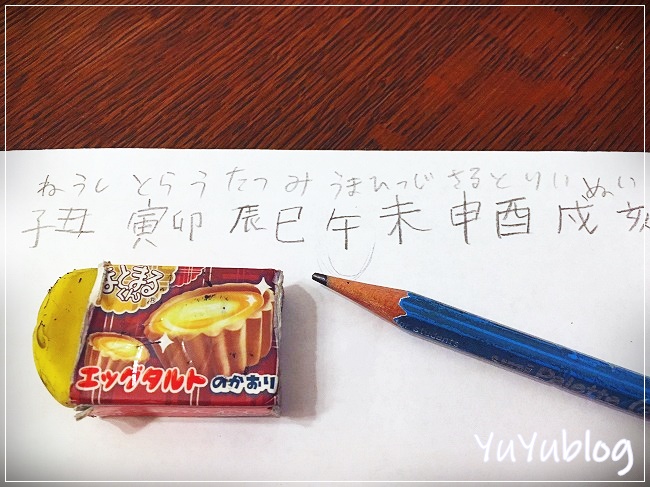 ねうし とらう たつみ うまひつじ さるとりいぬい
子丑 寅卯 辰巳 午未 申酉 戌亥
エッグタルト のかおり
YuYublog